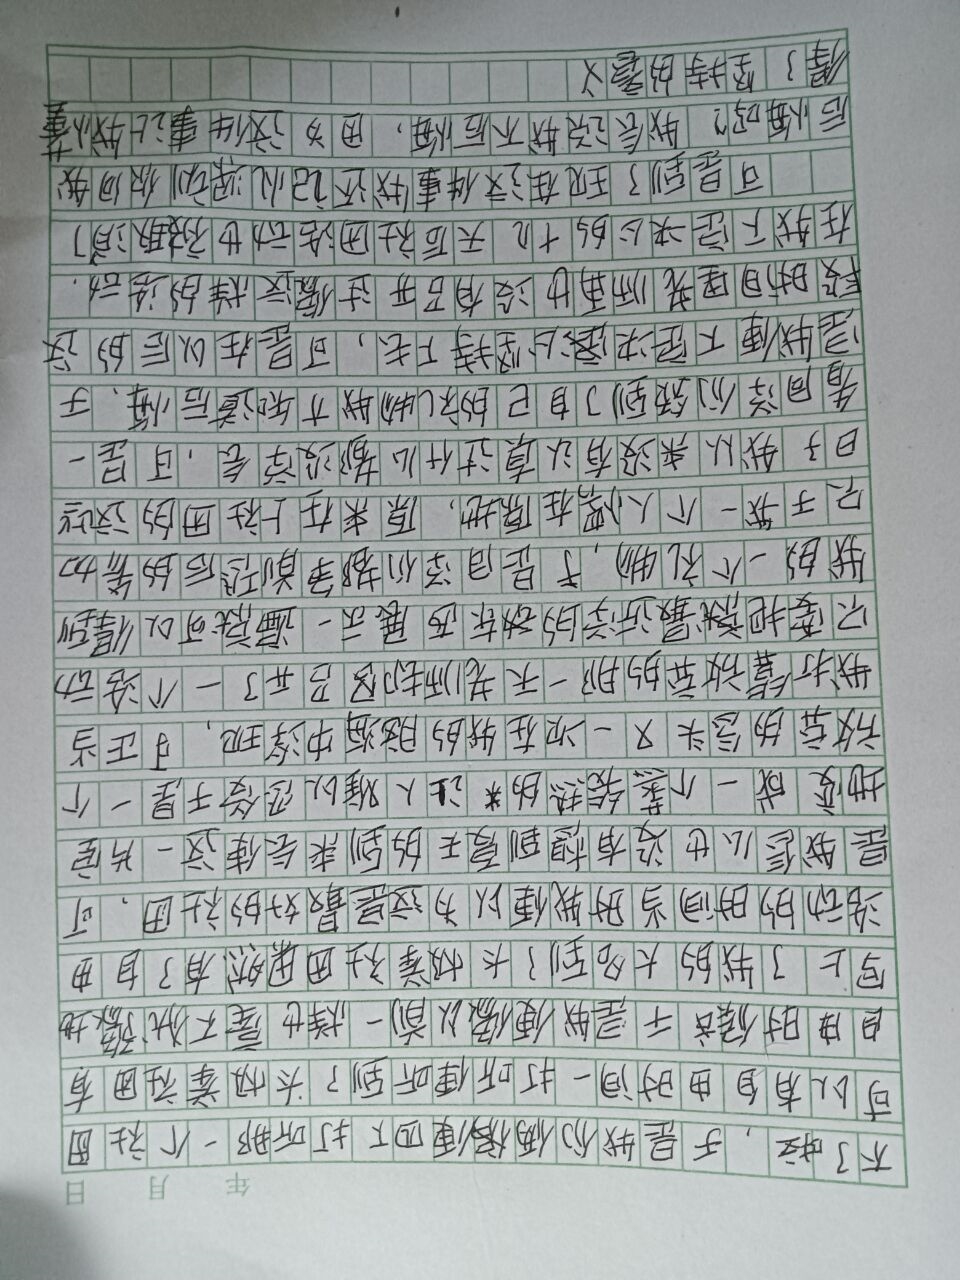 年 月 日
不了哎，于是我们俩便四下打听那一个社团
可以有自由时间一打听便听到了太极拳社团有
自由时候，于是我便像以前一样也毫不犹豫地
写上了我的大名到了太极拳社团果然有了自由
活动的时间当时我便以为这是最好的社团，可
是我怎么也没有想到夏天的到来会使这一片空
地变成一个蒸笼热的让人难以忍受于是一个
放弃的念头又一次在我的脑海中浮现，可正当
我打算放弃的那一天老师却召开了一个活动
只要把就最近学的动东西展示一遍就可以得到
我的一个礼物，于是同学们都争前恐后的参加
只于我一个人愣在原地，原来在上社团的这些
日子我以来没有认真过什么都没学会，可是一
看同学们领到了自己的礼物我才知道后悔，于
是我便下定决心坚持下去，可是在以后的这
段时间里老师再也没有召开过像这样的活动，
在我下定决心的十几天后社团活动也被取消了
可是到了现在这件事我还记忆深刻你问我
后悔吗？我会说我不后悔，因为这件事让我懂
得了坚持的意义